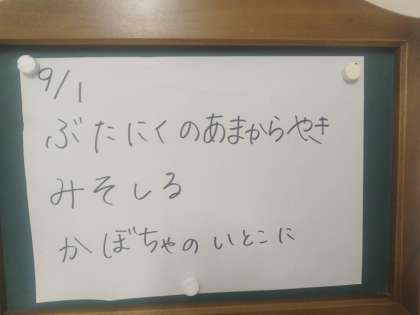 9/1
ぶたにくのあまからやき
みそしる
かぼちゃのいとこに